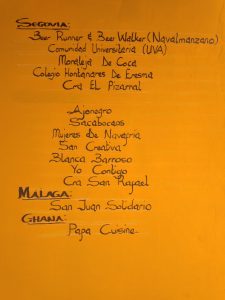 SEGOVIA:
Beer Runner & Beer Walker (Navalmanzano)
Comunidad Universitaria (UVA)
Moraleja De Coca
Colegio Hontanares De Eresma
Cra EL Pizarral
Ajonegro
Sacabocaos
Mujeres De Navafria
San Creativa
Blanca Barroso
Yo Contigo
Cra San Rafael
MALAGA:
San Juan Solidario
GHANA:
Papa Cuisine